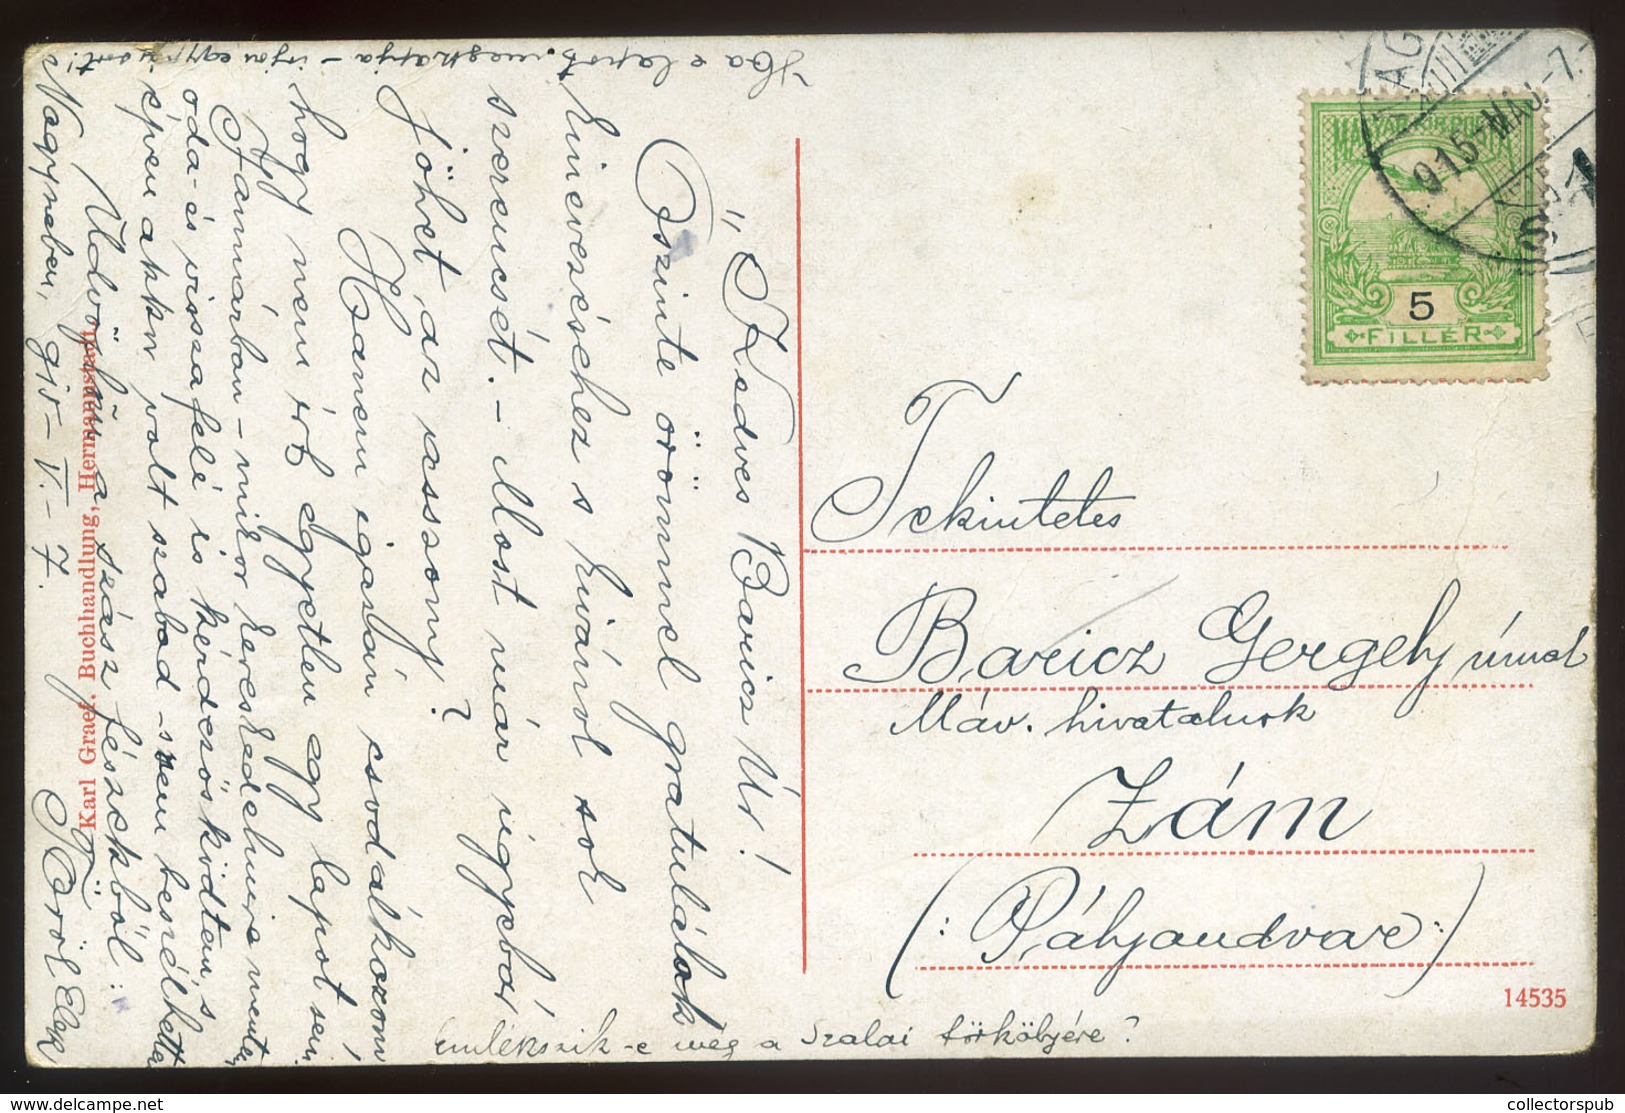 Ha e lapot megkapja - irjon egy sort!
"Kedves Baricz Úr!
Őszinte örömmel gratulálok
kinevezéséhez s kivánok sok
szerencsét. - Most már úgyebár
jöhet az asszony?
Hanem igazán csodálkozom
hogy nem írt egyetlen egy lapot sem.
Januárban - mikor kereskedelmire mentem
oda- és visszafelé is kérdezősködtem, s
éppen akkor volt szabad - nem beszélhettem
Üdvözlöm a szász fészekből:
Nagyszeben, 915-V.-7. Károly Elek
Karl Graef. Buchhandlung, Hermannstadt.
MAGYAR KIR. POSTA
5
FILLÉR
NAG
915 MÁJ. -7.
Tekintetes
Baricz Gergely úrnak
Máv. hivatalnok
Zám
(: Pályaudvar :)
14535
Emlékszik-e még a Szalai törkölyére?
collectorspub.com